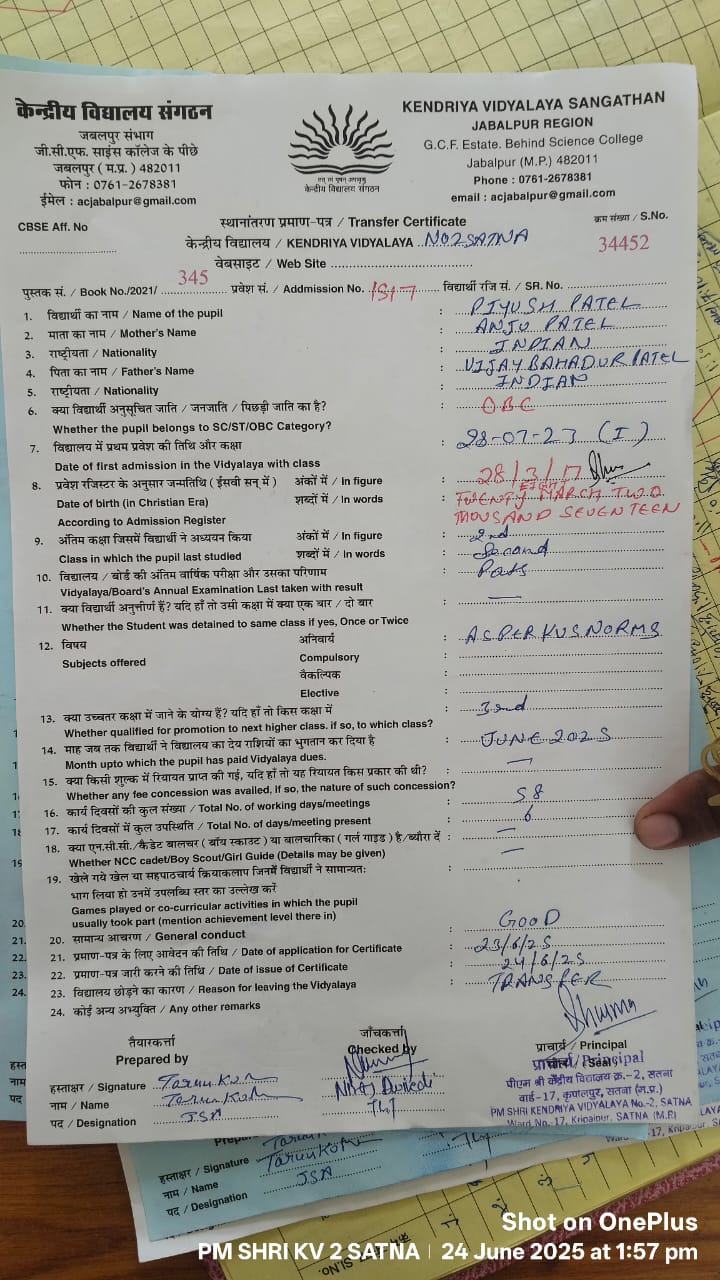 केन्द्रीय विद्यालय संगठन
जबलपुर संभाग
जी.सी.एफ. साइंस कॉलेज के पीछे
जबलपुर ( म.प्र. ) 482011
फोन : 0761-2678381
ईमेल : acjabalpur@gmail.com
केन्द्रीय विद्यालय संगठन
KENDRIYA VIDYALAYA SANGATHAN
JABALPUR REGION
G.C.F. Estate. Behind Science College
Jabalpur (M.P.) 482011
Phone : 0761-2678381
email : acjabalpur@gmail.com
CBSE Aff. No
स्थानांतरण प्रमाण-पत्र / Transfer Certificate
क्रम संख्या / S.No.
केन्द्रीय विद्यालय / KENDRIYA VIDYALAYA NO2 SATNA
34452
वेबसाइट / Web Site
पुस्तक सं. / Book No./2021/ 345 प्रवेश सं. / Addmission No. विद्यार्थी रजि सं. / SR. No.
1. विद्यार्थी का नाम / Name of the pupil : PIYUSH PATEL
2. माता का नाम / Mother's Name : ANJU PATEL
3. राष्ट्रीयता / Nationality : INDIAN
4. पिता का नाम / Father's Name : VIJAY BAHADUR PATEL
5. राष्ट्रीयता / Nationality : INDIAN
6. क्या विद्यार्थी अनुसूचित जाति / जनजाति / पिछड़ी जाति का है? : OBC
Whether the pupil belongs to SC/ST/OBC Category?
7. विद्यालय में प्रथम प्रवेश की तिथि और कक्षा : 28-07-23 (I)
Date of first admission in the Vidyalaya with class
8. प्रवेश रजिस्टर के अनुसार जन्मतिथि ( ईसवी सन् में ) अंकों में / In figure : 28/3/17
Date of birth (in Christian Era) शब्दों में / In words : TWENTY EIGHT MARCH TWO
According to Admission Register THOUSAND SEVENTEEN
9. अंतिम कक्षा जिसमें विद्यार्थी ने अध्ययन किया अंकों में / In figure : 2nd
Class in which the pupil last studied शब्दों में / In words Second
10. विद्यालय / बोर्ड की अंतिम वार्षिक परीक्षा और उसका परिणाम : Pass
Vidyalaya/Board's Annual Examination Last taken with result
11. क्या विद्यार्थी अनुत्तीर्ण हैं? यदि हाँ तो उसी कक्षा में क्या एक बार / दो बार : —
Whether the Student was detained to same class if yes, Once or Twice
12. विषय अनिवार्य : AS PER KVS NORMS
Subjects offered Compulsory
वैकल्पिक
Elective
13. क्या उच्चतर कक्षा में जाने के योग्य हैं? यदि हाँ तो किस कक्षा में : 3rd
Whether qualified for promotion to next higher class. if so, to which class?
14. माह जब तक विद्यार्थी ने विद्यालय का देय राशियों का भुगतान कर दिया है : JUNE 2025
Month upto which the pupil has paid Vidyalaya dues.
15. क्या किसी शुल्क में रियायत प्राप्त की गई, यदि हाँ तो यह रियायत किस प्रकार की थी? : —
Whether any fee concession was availed, if so, the nature of such concession?
16. कार्य दिवसों की कुल संख्या / Total No. of working days/meetings : 58
17. कार्य दिवसों में कुल उपस्थिति / Total No. of days/meeting present : 6
18. क्या एन.सी.सी./कैडेट बालचर ( बॉय स्काउट ) या बालचारिका ( गर्ल गाइड ) है/ब्यौरा दें : —
Whether NCC cadet/Boy Scout/Girl Guide (Details may be given) —
19. खेले गये खेल या सहपाठचार्य क्रियाकलाप जिनमें विद्यार्थी ने सामान्यतः :
भाग लिया हो उनमें उपलब्धि स्तर का उल्लेख करें
Games played or co-curricular activities in which the pupil
usually took part (mention achievement level there in)
20. सामान्य आचरण / General conduct : GOOD
21. प्रमाण-पत्र के लिए आवेदन की तिथि / Date of application for Certificate : 23/6/25
22. प्रमाण-पत्र जारी करने की तिथि / Date of issue of Certificate : 24/6/25
23. विद्यालय छोड़ने का कारण / Reason for leaving the Vidyalaya : TRANSFER
24. कोई अन्य अभ्युक्ति / Any other remarks
तैयारकर्त्ता
Prepared by
जाँचकर्त्ता
Checked by
प्राचार्य / Principal
(Seal)
प्राचार्य/Principal
पीएम श्री केंद्रीय विद्यालय क्र.-2, सतना
वार्ड-17, कृपालपुर, सतना (म.प्र.)
PM SHRI KENDRIYA VIDYALAYA No.-2, SATNA
Ward No. 17, Kripalpur, SATNA (M.P.)
हस्ताक्षर / Signature
नाम / Name
पद / Designation JSA TGT
हस्ताक्षर / Signature
नाम / Name
पद / Designation JSA
Shot on OnePlus
PM SHRI KV 2 SATNA | 24 June 2025 at 1:57 pm